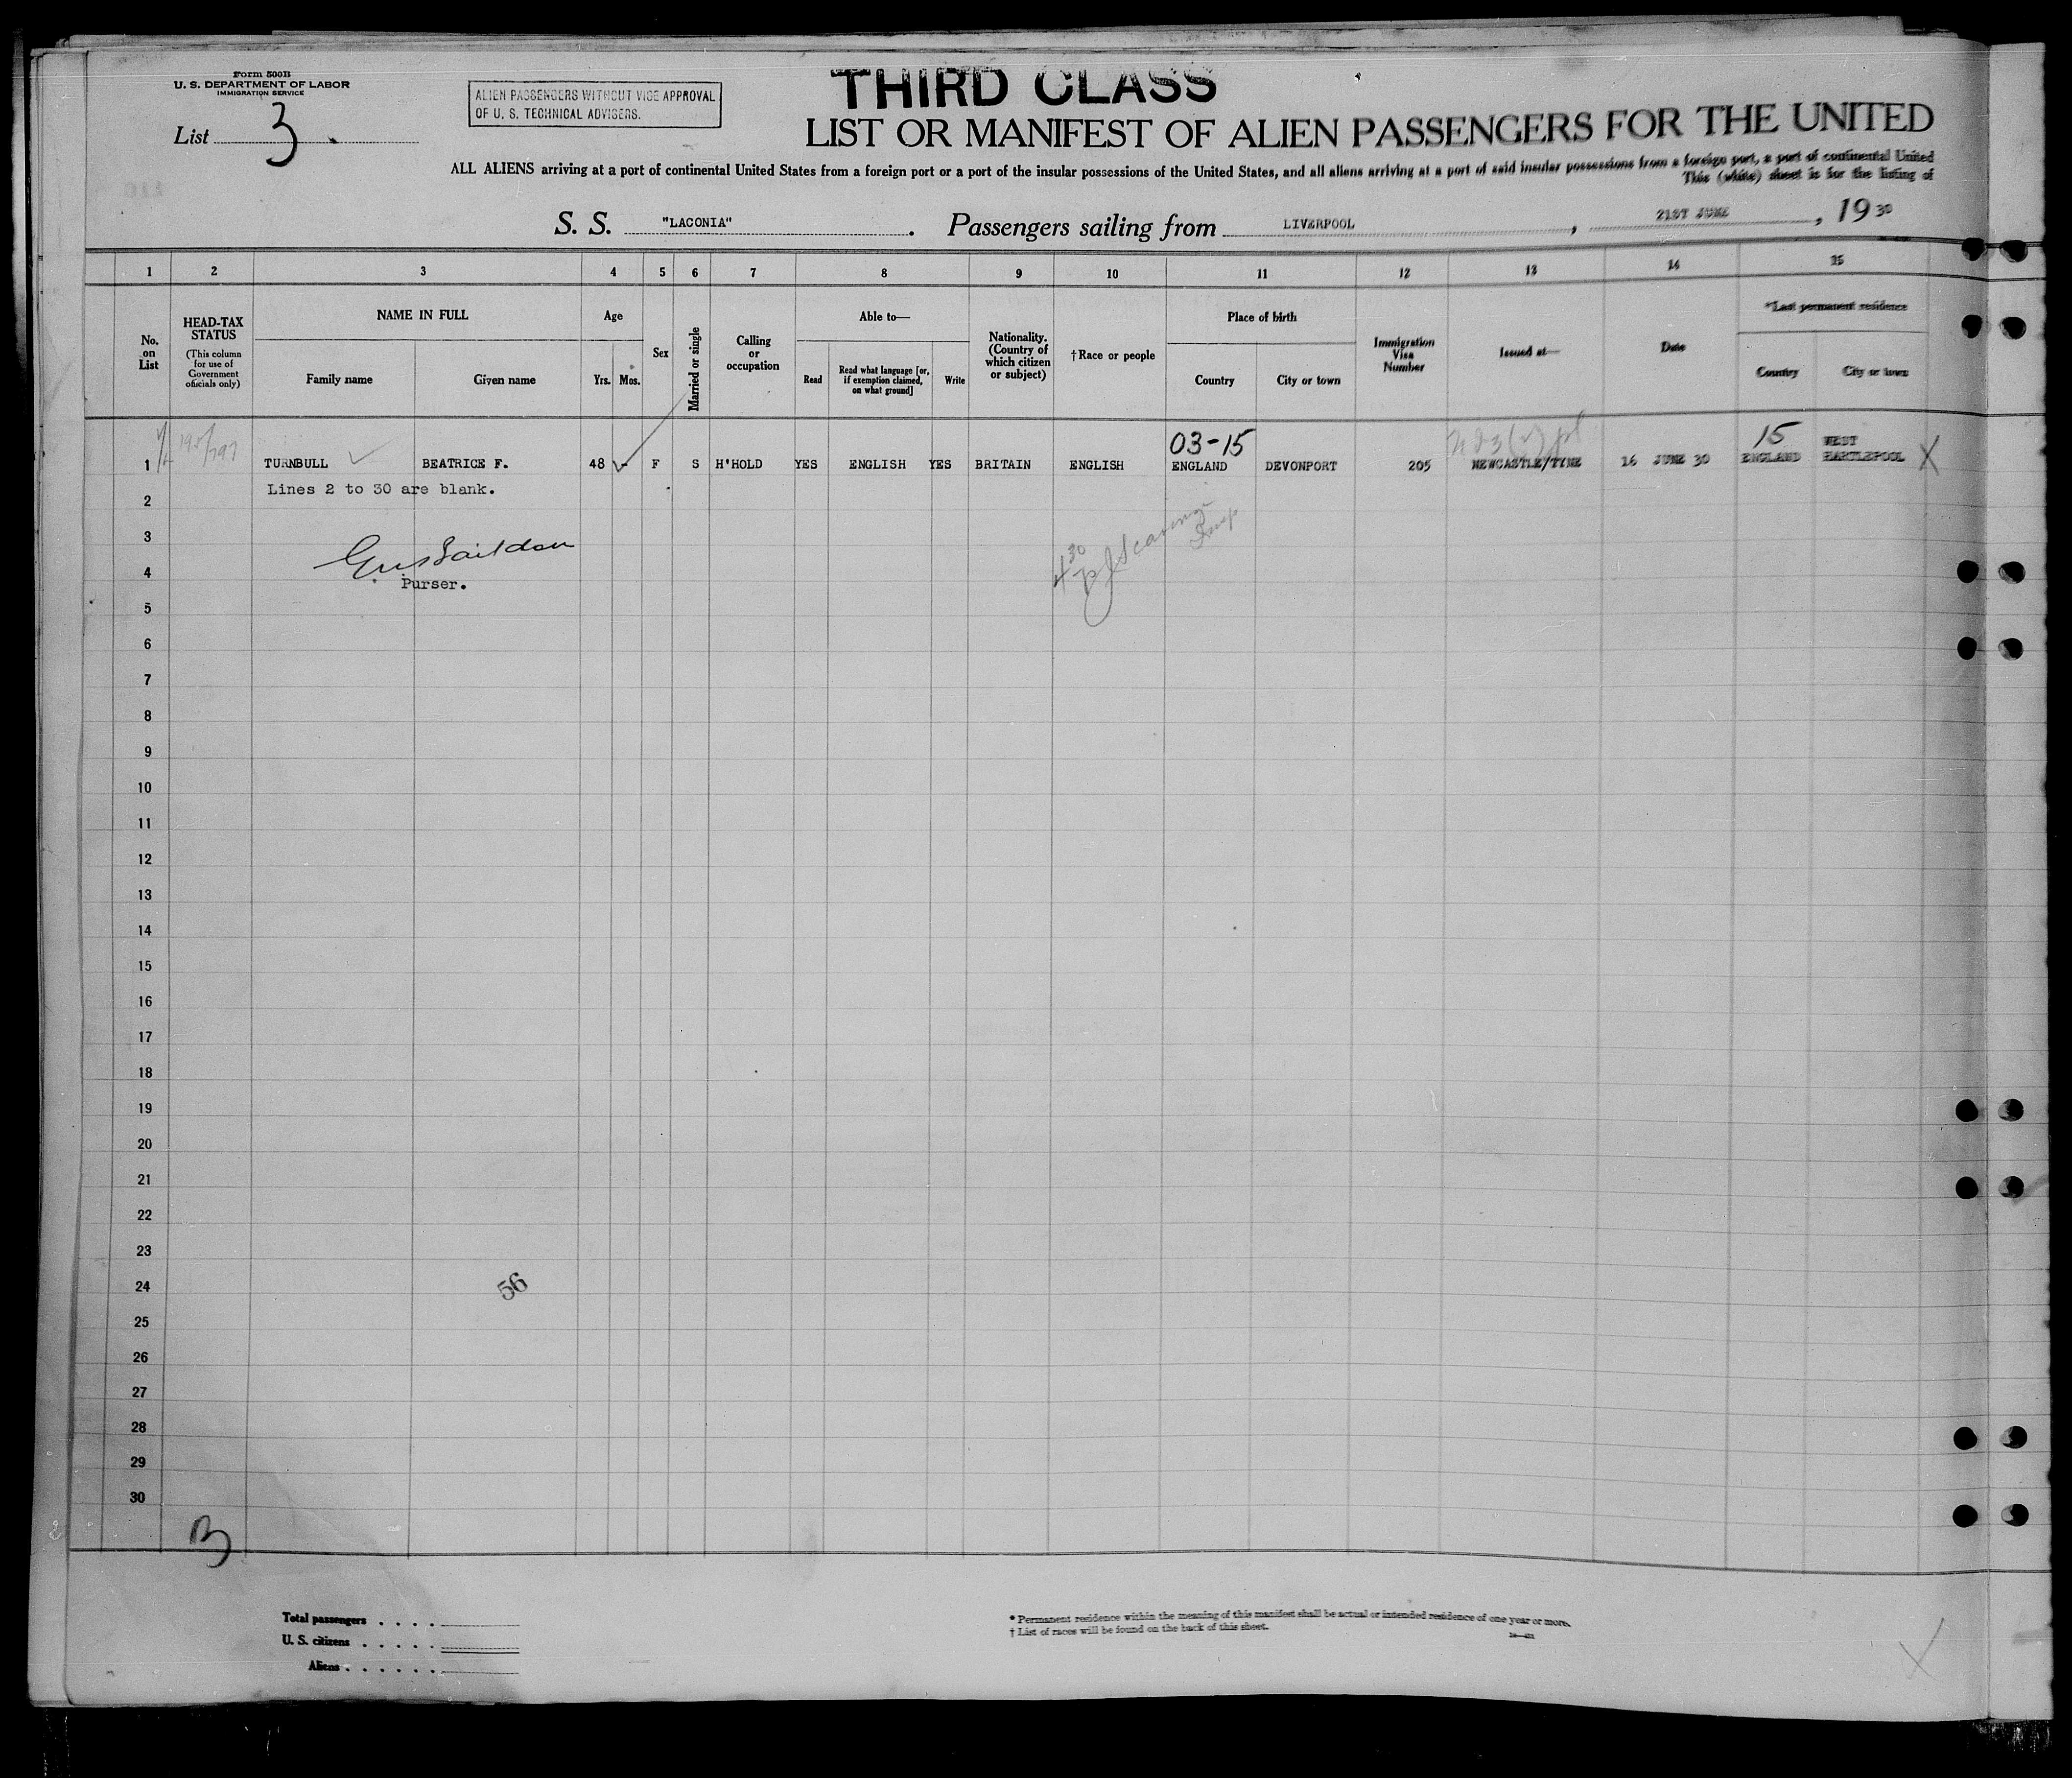 Form 500B
U. S. DEPARTMENT OF LABOR
IMMIGRATION SERVICE
List 3.
ALIEN PASSENGERS WITHOUT VISE APPROVAL
OF U. S. TECHNICAL ADVISERS.
THIRD CLASS
LIST OR MANIFEST OF ALIEN PASSENGERS FOR THE UNITED
ALL ALIENS arriving at a port of continental United States from a foreign port or a port of the insular possessions of the United States, and all aliens arriving at a port of said insular possessions from a foreign port, a port of continental United
This (white) sheet is for the listing of
S. S. "LACONIA". Passengers sailing from LIVERPOOL, 21ST JUNE, 19 30
1 2 3 4 5 6 7 8 9 10 11 12 13 14 15
No. on List
HEAD-TAX STATUS
(This column for use of Government officials only)
NAME IN FULL
Family name
Given name
Age
Yrs. Mos.
Sex
Married or single
Calling or occupation
Able to—
Read
Read what language [or, if exemption claimed, on what ground]
Write
Nationality. (Country of which citizen or subject)
†Race or people
Place of birth
Country
City or town
Immigration Visa Number
Issued at—
Date
*Last permanent residence
Country
City or town
03-15
15
1 TURNBULL BEATRICE F. 48 - F S H'HOLD YES ENGLISH YES BRITAIN ENGLISH ENGLAND DEVONPORT 205 NEWCASTLE/TYNE 16 JUNE 30 ENGLAND WEST HARTLEPOOL X
Lines 2 to 30 are blank.
2
3
4
Purser.
5
6
7
8
9
10
11
12
13
14
15
16
17
18
19
20
21
22
23
24
56
25
26
27
28
29
30
Total passengers . . . .
U. S. citizens . . . . .
Aliens . . . . . .
* Permanent residence within the meaning of this manifest shall be actual or intended residence of one year or more.
† List of races will be found on the back of this sheet.